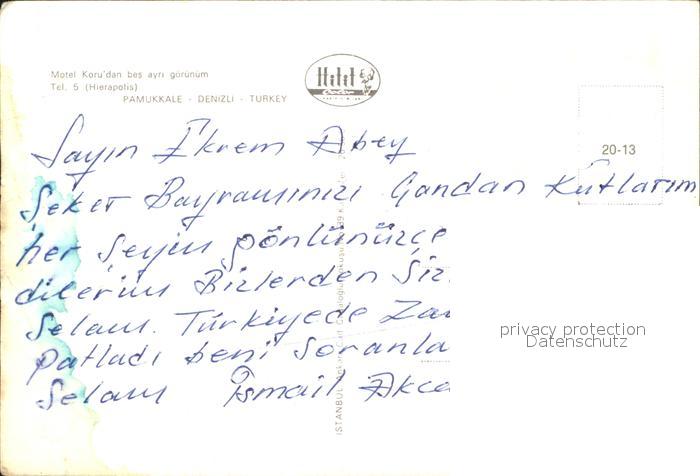 Motel Koru'dan beş ayrı görünüm
Tel. 5 (Hierapolis)
PAMUKKALE - DENİZLİ - TURKEY
Hitit
Color
20-13
Sayın Ekrem Abey
Şeker Bayramınızı Candan Kutlarım
her Şeyin gönlünüzce
dilerim Bizlerden Siz
Selam. Türkiyede Za
patladı beni soranla
Selam İsmail Akca
İSTANBUL
privacy protection
Datenschutz